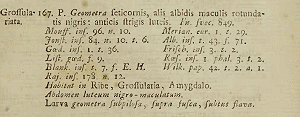 Grossula- 167. P. Geometra seticornis, alis albidis maculis rotunda-
riata. tis nigris: anticis strigis luteis. Fn. svec. 849.
Mouff. ins. 96. n. 10. Merian. eur. 1. s. 29.
Jonst. ins. 84. n. 10. s. 6. Alb. ins. t. 43. f. 71.
Gœd. ins. 1. s. 36. Frisch. ins. 3. s. 2.
List. gœd. f. 9. Raj. ins. 1 phal. 3. s. 2.
Blank. ins s. 7. f. E. H. Wilk. pap. 42. t. 2. a. 1.
Raj. ins. 178 n. 12.
Habitat in Ribe, Grossularia, Amygdalo.
Abdomen luteum nigro-maculatum.
Larva geometra subpilosa, supra fusca, subtus flava.